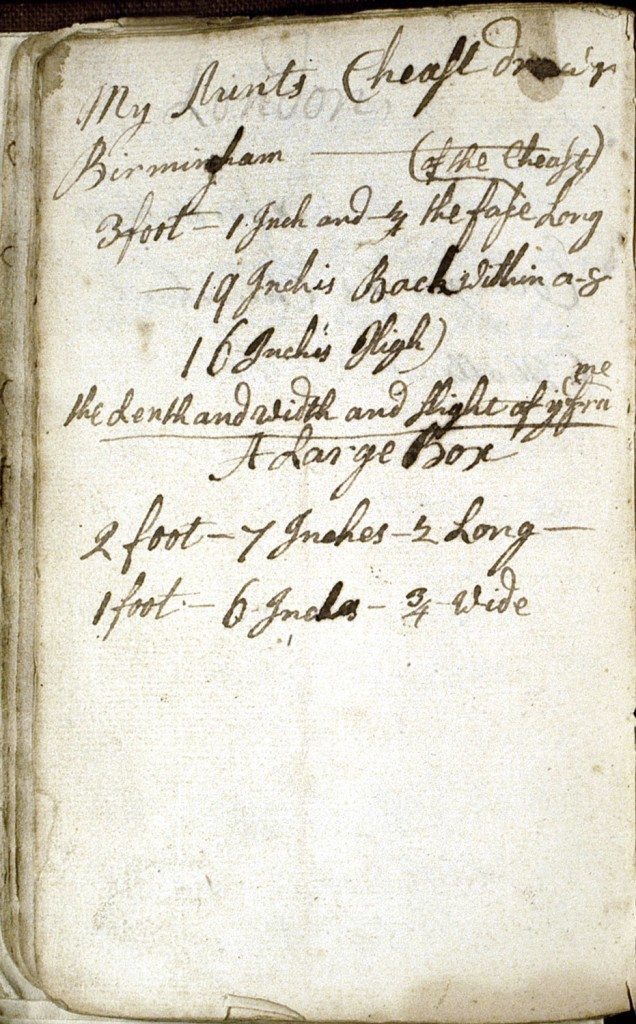 My Aunts Cheast drawr
Birmingham — (of the Cheast)
3 foot – 1 Inch and the fase Long
– 19 Inchis Back within a-8
16 Inchis High)
the Lenth and width and Hight of ye frame
A Large Box
2 foot – 7 Inches – ½ Long –
1 foot – 6 Inches – ¾ wide